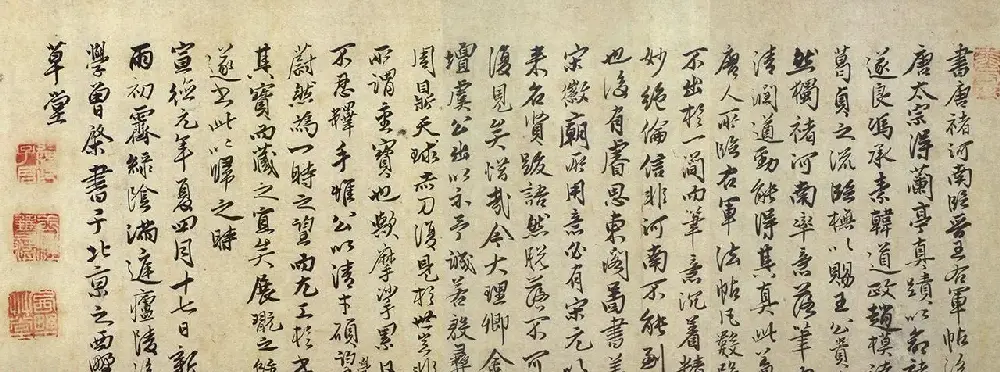 書唐褚河南臨晉王右軍帖後
唐太宗得蘭亭真蹟以命褚
遂良馮承素韓道政趙模諸
葛貞之流臨橅以賜王公貴
然獨褚河南率意落筆
清潤遒勁能得其真此蓋
唐人所臨右軍法帖凡數
不出於一简而筆意沉着精
妙絕倫信非河南不能到
也後有睿思東閣圖書
宋徽廟所用意必有宋元以
来名賢跋語然脫落不可
復見矣惜哉今大理卿金
壇虞公出以示予誠若殷彝
周鼎天球赤刀復見於世豈非
所謂重寶也歟摩挲累日
不忍釋手惟公以清才碩
蔚然為一時之望而尤工於
其寶而藏之宜矣展玩之餘
遂書此以歸之時
宣德元年夏四月十七日新
雨初霽綠陰滿庭廬陵
學曾棨書于北京之西墅
草堂